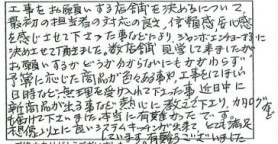 工事をお願いする店舗を決めるについて、
最初の担当者の対応の良さ、信頼感安心感
を感じさせて下さった事などにより、ジャンボエンチョーさんに
決めさせて頂きました。数店舗見学して来ましたが
お願いするかどうか分からないにもかかわらず
予算に応じた商品が色々ある事や、工事をしてほしい
日時など無理を受け入れて下さった事 近日中に
新商品が出る事など熱心に教えて下さり、カタログなど
も届けて下さいました。本当に有難かったです。
想像以上に良いシステムキッチンが出来て とても満足
しています。有難うございました